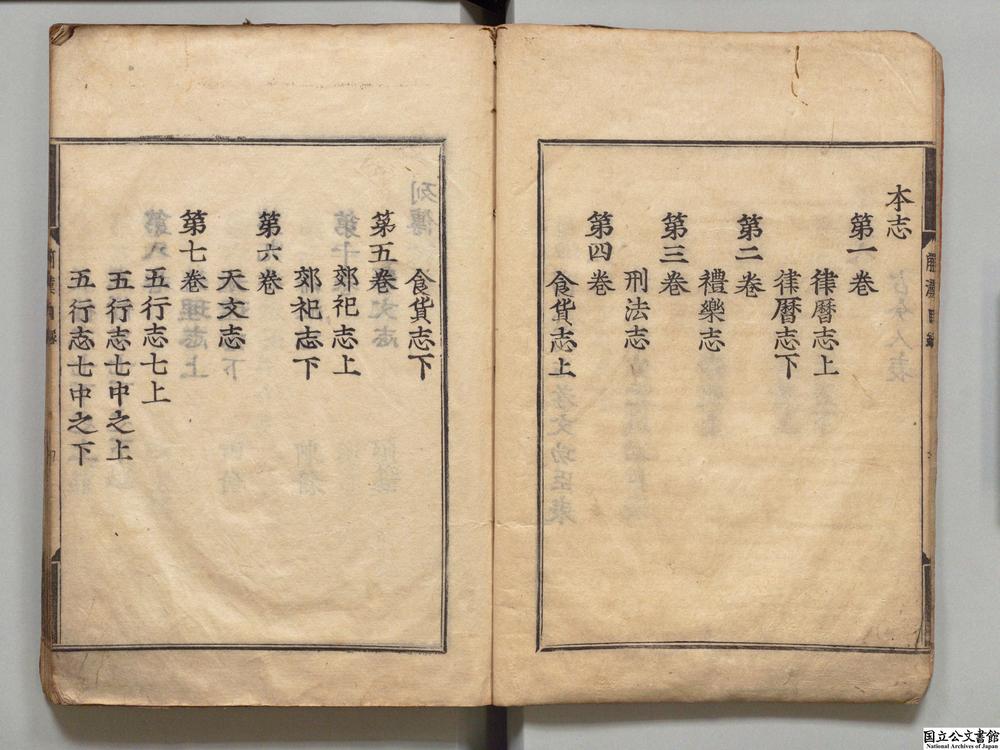 本志
第一卷
律曆志上
律曆志下
第二卷
禮樂志
第三卷
刑法志
第四卷
食貨志上
食貨志下
第五卷
郊祀志上
郊祀志下
第六卷
天文志
第七卷
五行志七上
五行志七中之上
五行志七中之下
国立公文書館
National Archives of Japan